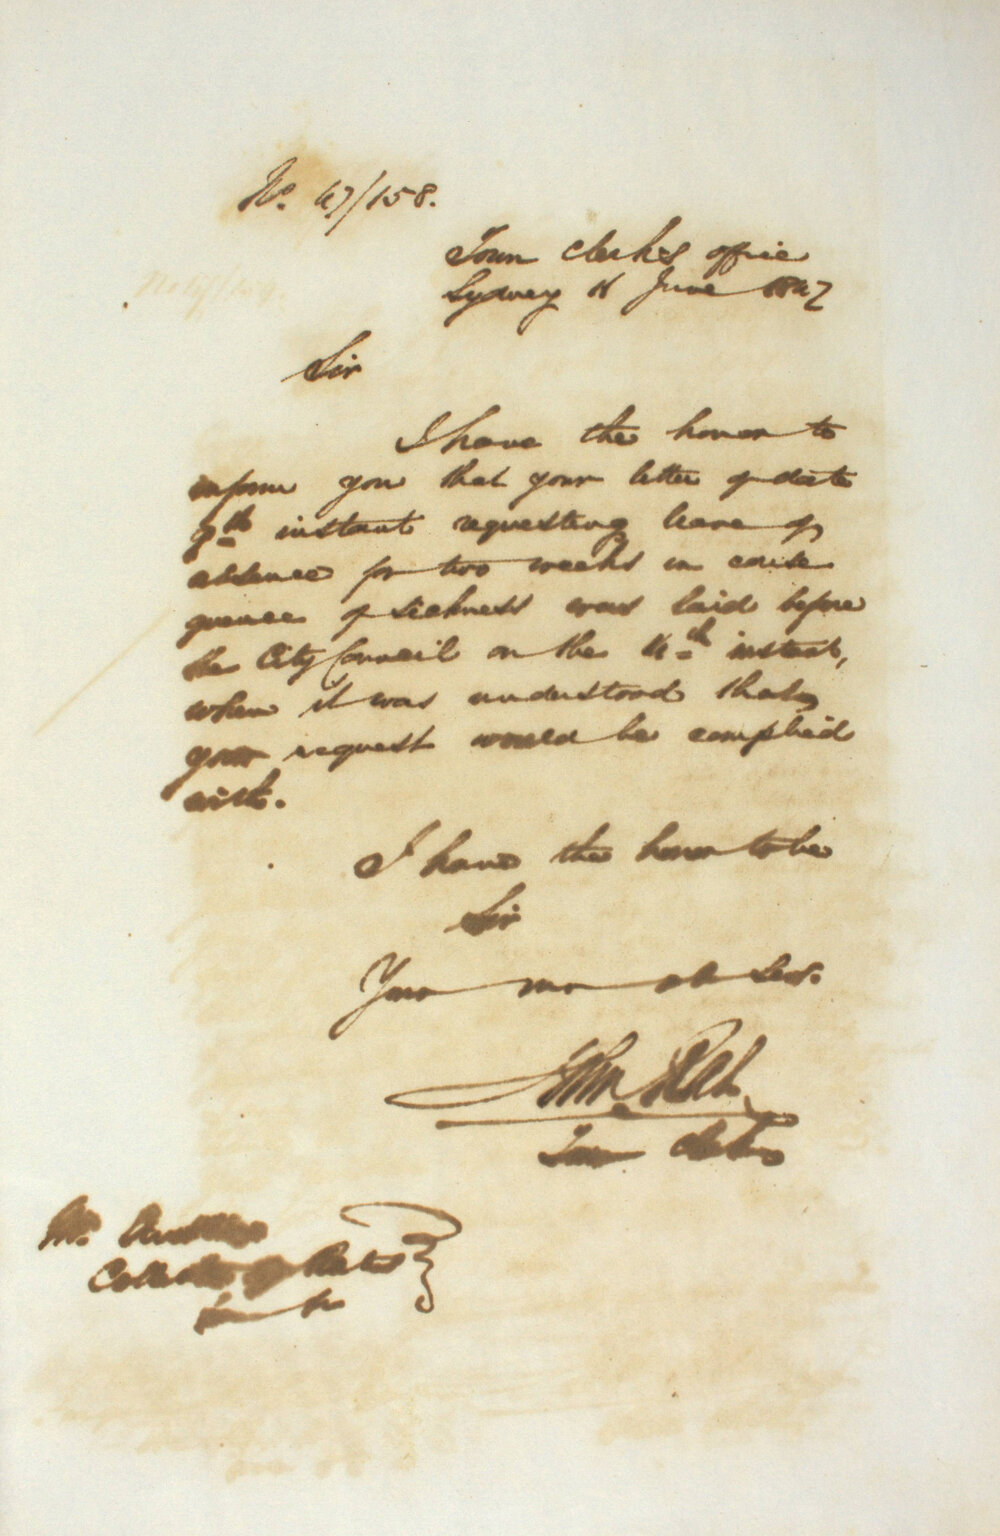 No. 47/158.
Town Clerk's Office
Sydney 16 June 1847
Sir
I have the honor to
inform you that your letter of date
9th instant requesting leave of
absence for two weeks in conse
quence of sickness was laid before
the City Council on the 14th instant,
when it was understood that
your request would be complied
with.
I have the honor to be
Sir
Your ob Ser.
John Rae
Town Clerk
Mr.
Collector of Rates